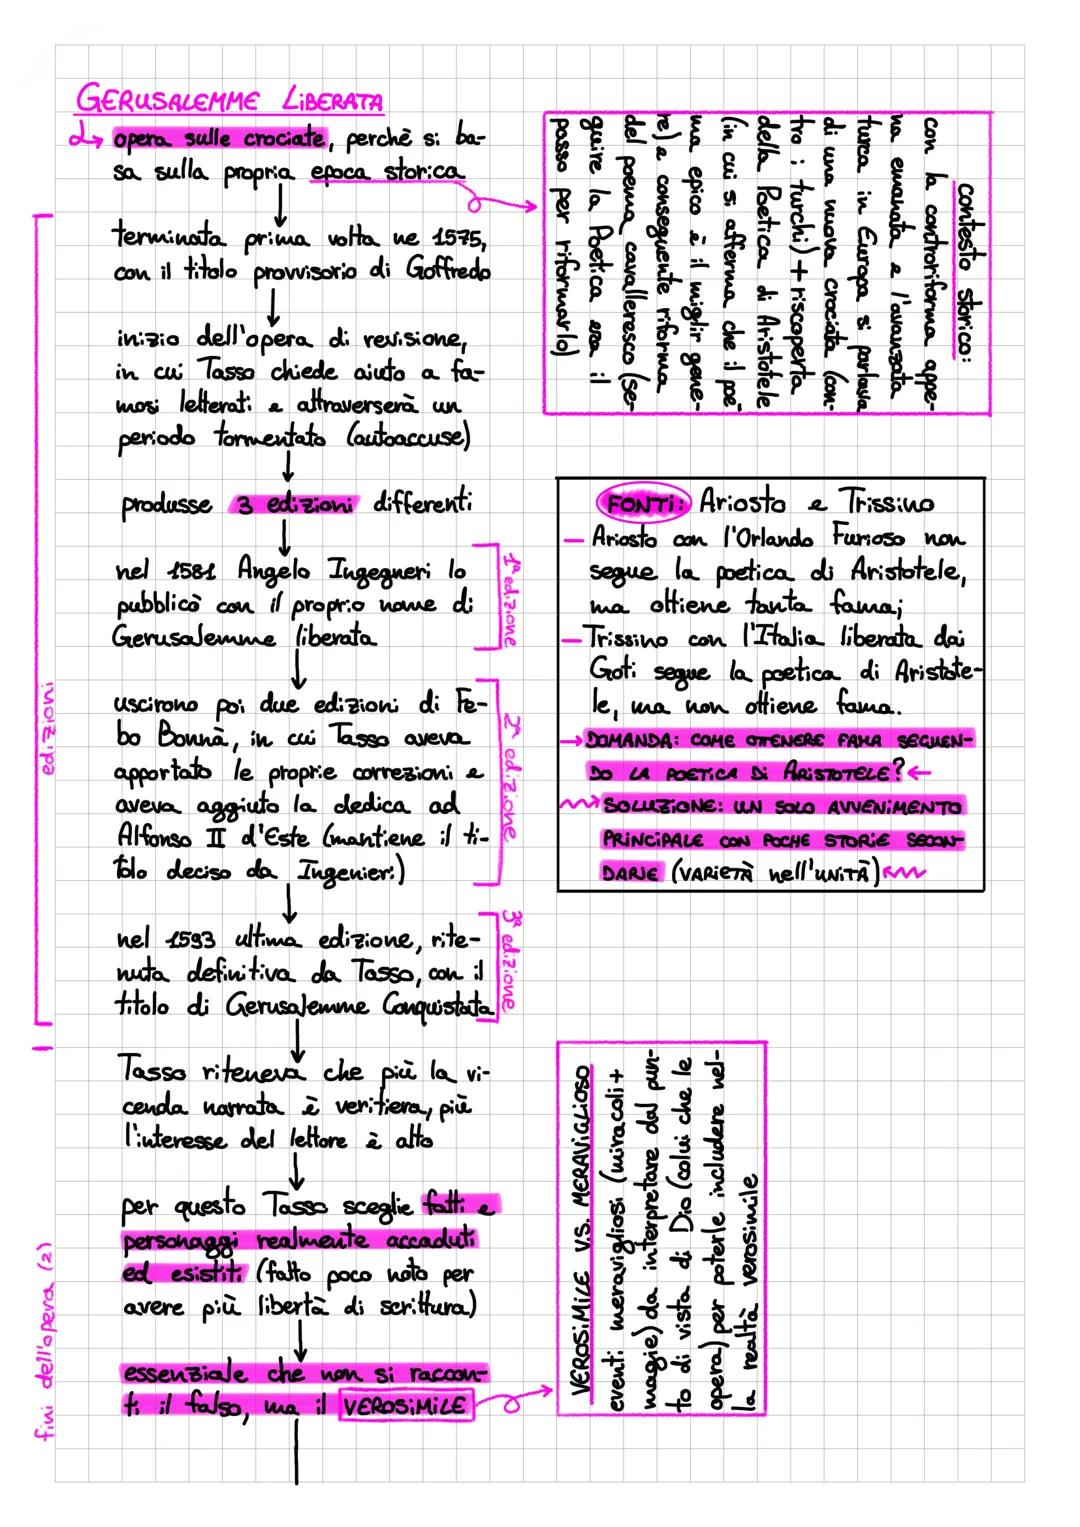 GERUSALEMME LIBERATA
opera sulle crociate, perchè si ba-
sa sulla propria epoca storica
terminata prima volta ne 1575,
con il titolo provvisorio di Goffredo
inizio dell'opera di revisione,
in cui Tasso chiede aiuto a fa-
mosi letterati e attraverserà un
periodo tormentato (autoaccuse)
produsse 3 edizioni differenti
nel 1581 Angelo Ingegneri lo
pubblicò con il proprio nome di
Gerusalemme liberata
1ª edizione
uscirono poi due edizioni di Fe-
bo Bonnà, in cui Tasso aveva
apportato le proprie correzioni e
aveva aggiuto la dedica ad
Alfonso II d'Este (mantiene il ti-
tolo deciso da Ingenieri)
2ª edizione
nel 1593 ultima edizione, rite-
nuta definitiva da Tasso, con il
titolo di Gerusalemme Conquistata
3ª edizione
edizioni
Tasso riteneva che più la vi-
cenda narrata è veritiera, più
l'interesse del lettore è alto
per questo Tasso sceglie fatti e
personaggi realmente accaduti
ed esistiti (fatto poco noto per
avere più libertà di scrittura)
essenziale che non si raccon-
ti il falso, ma il VEROSIMILE
fini dell'opera (2)
contesto storico:
con la controriforma appe-
na emanata e l'avanzata
turca in Europa si parlava
di una nuova crociata (con-
tro i turchi) + riscoperta
della Poetica di Aristotele
(in cui si afferma che il poe-
ma epico è il miglir gene-
re) e conseguente riforma
del poema cavalleresco (se-
guire la Poetica era il
passo per riformarlo)
FONTI: Ariosto e Trissino
- Ariosto con l'Orlando Furioso non
segue la poetica di Aristotele,
ma ottiene tanta fama;
- Trissino con l'Italia liberata dai
Goti segue la poetica di Aristote-
le, ma non ottiene fama.
DOMANDA: COME OTTENERE FAMA SEGUEN-
DO LA POETICA DI ARISTOTELE?
SOLUZIONE: UN SOLO AVVENIMENTO
PRINCIPALE CON POCHE STORIE SECON-
DARIE (VARIETÀ nell'UNITÀ)
VEROSIMILE V.S. MERAVIGLIOSO
eventi meravigliosi (miracoli +
magie) da interpretare dal pun-
to di vista di Dio (colui che le
opera) per poterle includere nel-
la realtà verosimile